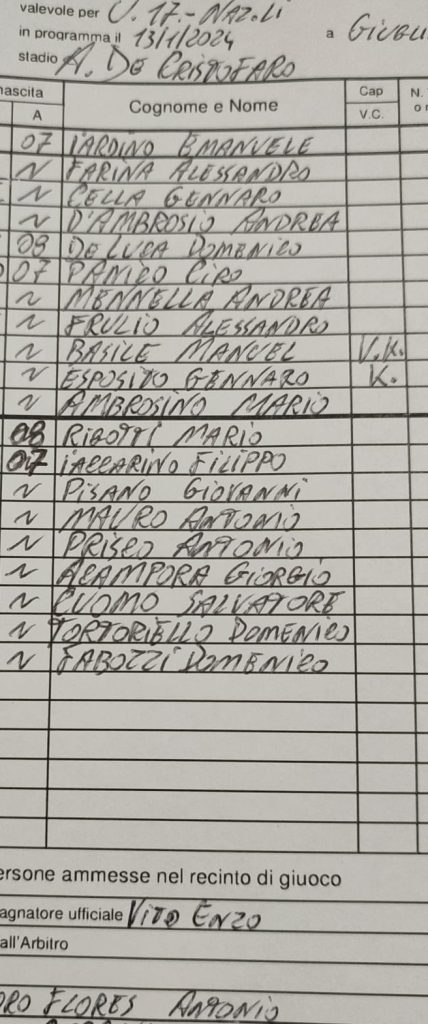 valevole per U. 17.- NAZ.LI
in programma il 13/1/2024 a GIUGLI
stadio A. DE CRISTOFARO
nascita Cognome e Nome Cap N.
A V.C.
07 IARDINO EMANUELE
N FARINA ALESSANDRO
N CELLA GENNARO
N D'AMBROSIO ANDREA
08 DE LUCA DOMENICO
07 PANICO CIRO
N MENNELLA ANDREA
N FRULIO ALESSANDRO
N BASILE MANUEL V.K.
N ESPOSITO GENNARO K.
N AMBROSINO MARIO
08 RIGOTTI MARIO
07 IACCARINO FILIPPO
N PISANO GIOVANNI
N MAURO ANTONIO
N PRISCO ANTONIO
N ACAMPORA GIORGIO
N CUOMO SALVATORE
N TORTORIELLO DOMENICO
N FABOZZI DOMENICO
ersone ammesse nel recinto di giuoco
agnatore ufficiale VITO ENZO
all'Arbitro
DRO FLORES ANTONIO